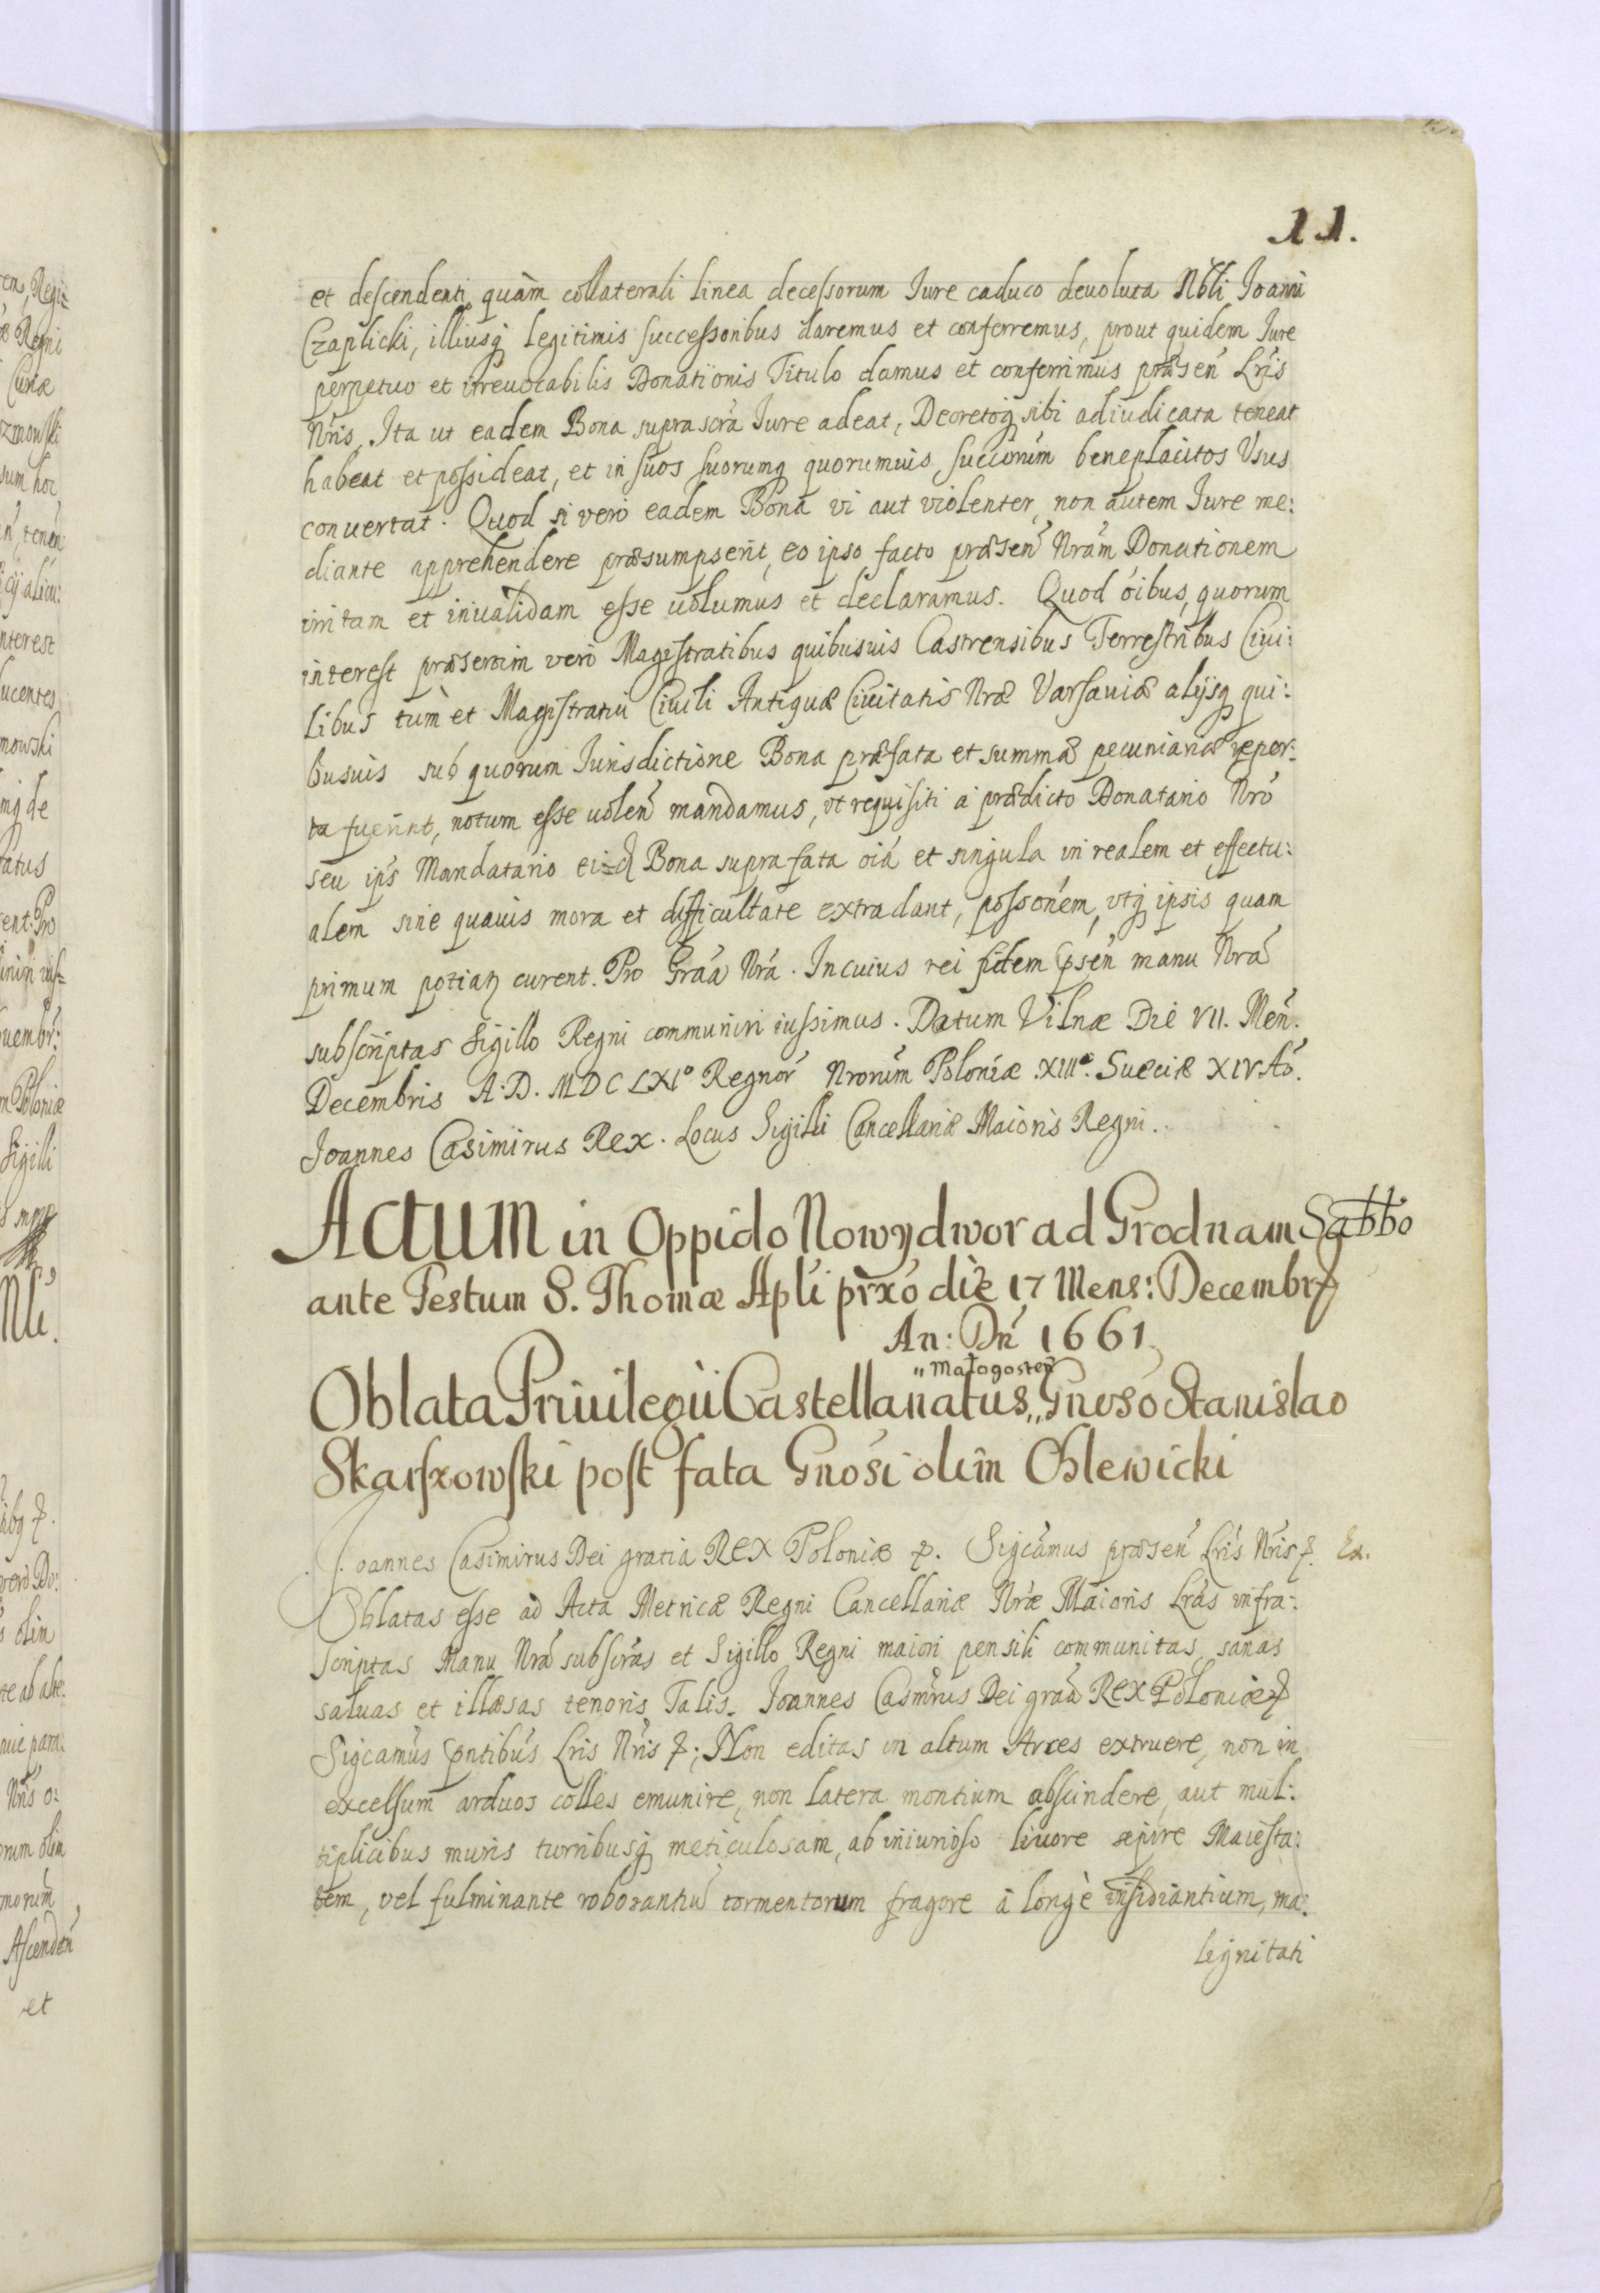 11.
et descendenti quàm collaterali linea decessorum Jure caduco devoluta Nbli Joanni
Czaplicki, illiusq legitimis successoribus daremus et conferremus, prout quidem Jure
perpetuo et irrevocabilis Donationis Titulo damus et conferimus præsen Lris
Nris, Ita ut eadem Bona suprascra Jure adeat, Decretoq sibi adiudicata teneat
habeat et possideat, et in suos suorumq quorumuis succorum beneplacitos Usus
conuertat. Quod si vero eadem Bona vi aut violenter, non autem Jure me:
diante apprehendere præsumpserit, eo ipso facto præsen Nram Donationem
irritam et inualidam esse uolumus et declaramus. Quod oibus, quorum
interest præsertim vero Magistratibus quibusuis Castrensibus Terrestribus Ciui:
libus tum et Magistratui Ciuili Antiquæ Ciuitatis Nræ Varsauiæ alijsq qui:
busuis sub quorum Jurisdictione Bona præfata et summæ pecuniariæ reper:
ta fuerint, notum esse uolen mandamus, ut requisiti a prædicto Donatario Nro
seu ips Mandatario Bona supra fata oia et singula in realem et effectu:
alem sine quauis mora et difficultate extradant, possonem, utq ipsis quam
primum curent. Pro Graa Nra. In cuius rei fidem psen manu Nra
subscriptas Sigillo Regni communiri iussimus. Datum Vilnæ Die VII. Men.
Decembris A. D. MDCLXI° Regnor Nrorum Poloniæ XIII°. Sueciæ XIV Ao.
Joannes Casimirus Rex. Locus Sigilli Cancellariæ Maioris Regni.
Actum in Oppido Nowydwor ad Grodnam Sabbo
ante Festum S. Thomæ Apli prxo die 17 Mens: Decembr
An: Dni 1661
„Małogosten
Oblata Priuilegii Castellanatus „ Gnoso Stanislao
Skarsxowski post fata Gnosi olim Oslewicki
Joannes Casimirus Dei gratia REX Poloniæ &. Sigcamus præsen Lris Nris &. Ex.
Oblatas esse ad Acta Metricæ Regni Cancellariæ Nræ Maioris Lras infra:
scriptas Manu Nra subscras et Sigillo Regni maiori pensili communitas, sanas
saluas et illæsas tenoris Talis. Joannes Casmirus Dei graa REX Poloniæ &
Sigcamus pntibus Lris Nris &; Non editas in altum Arces extruere, non in
excelsum arduos colles emunire, non latera montium abscindere, aut mul:
tiplicibus muris turribusq meticulosam, ab iniurioso liuore sepire Maiesta:
tem, vel fulminante roborantiu tormentorum fragore à longè insidiantium, ma:
lignitati